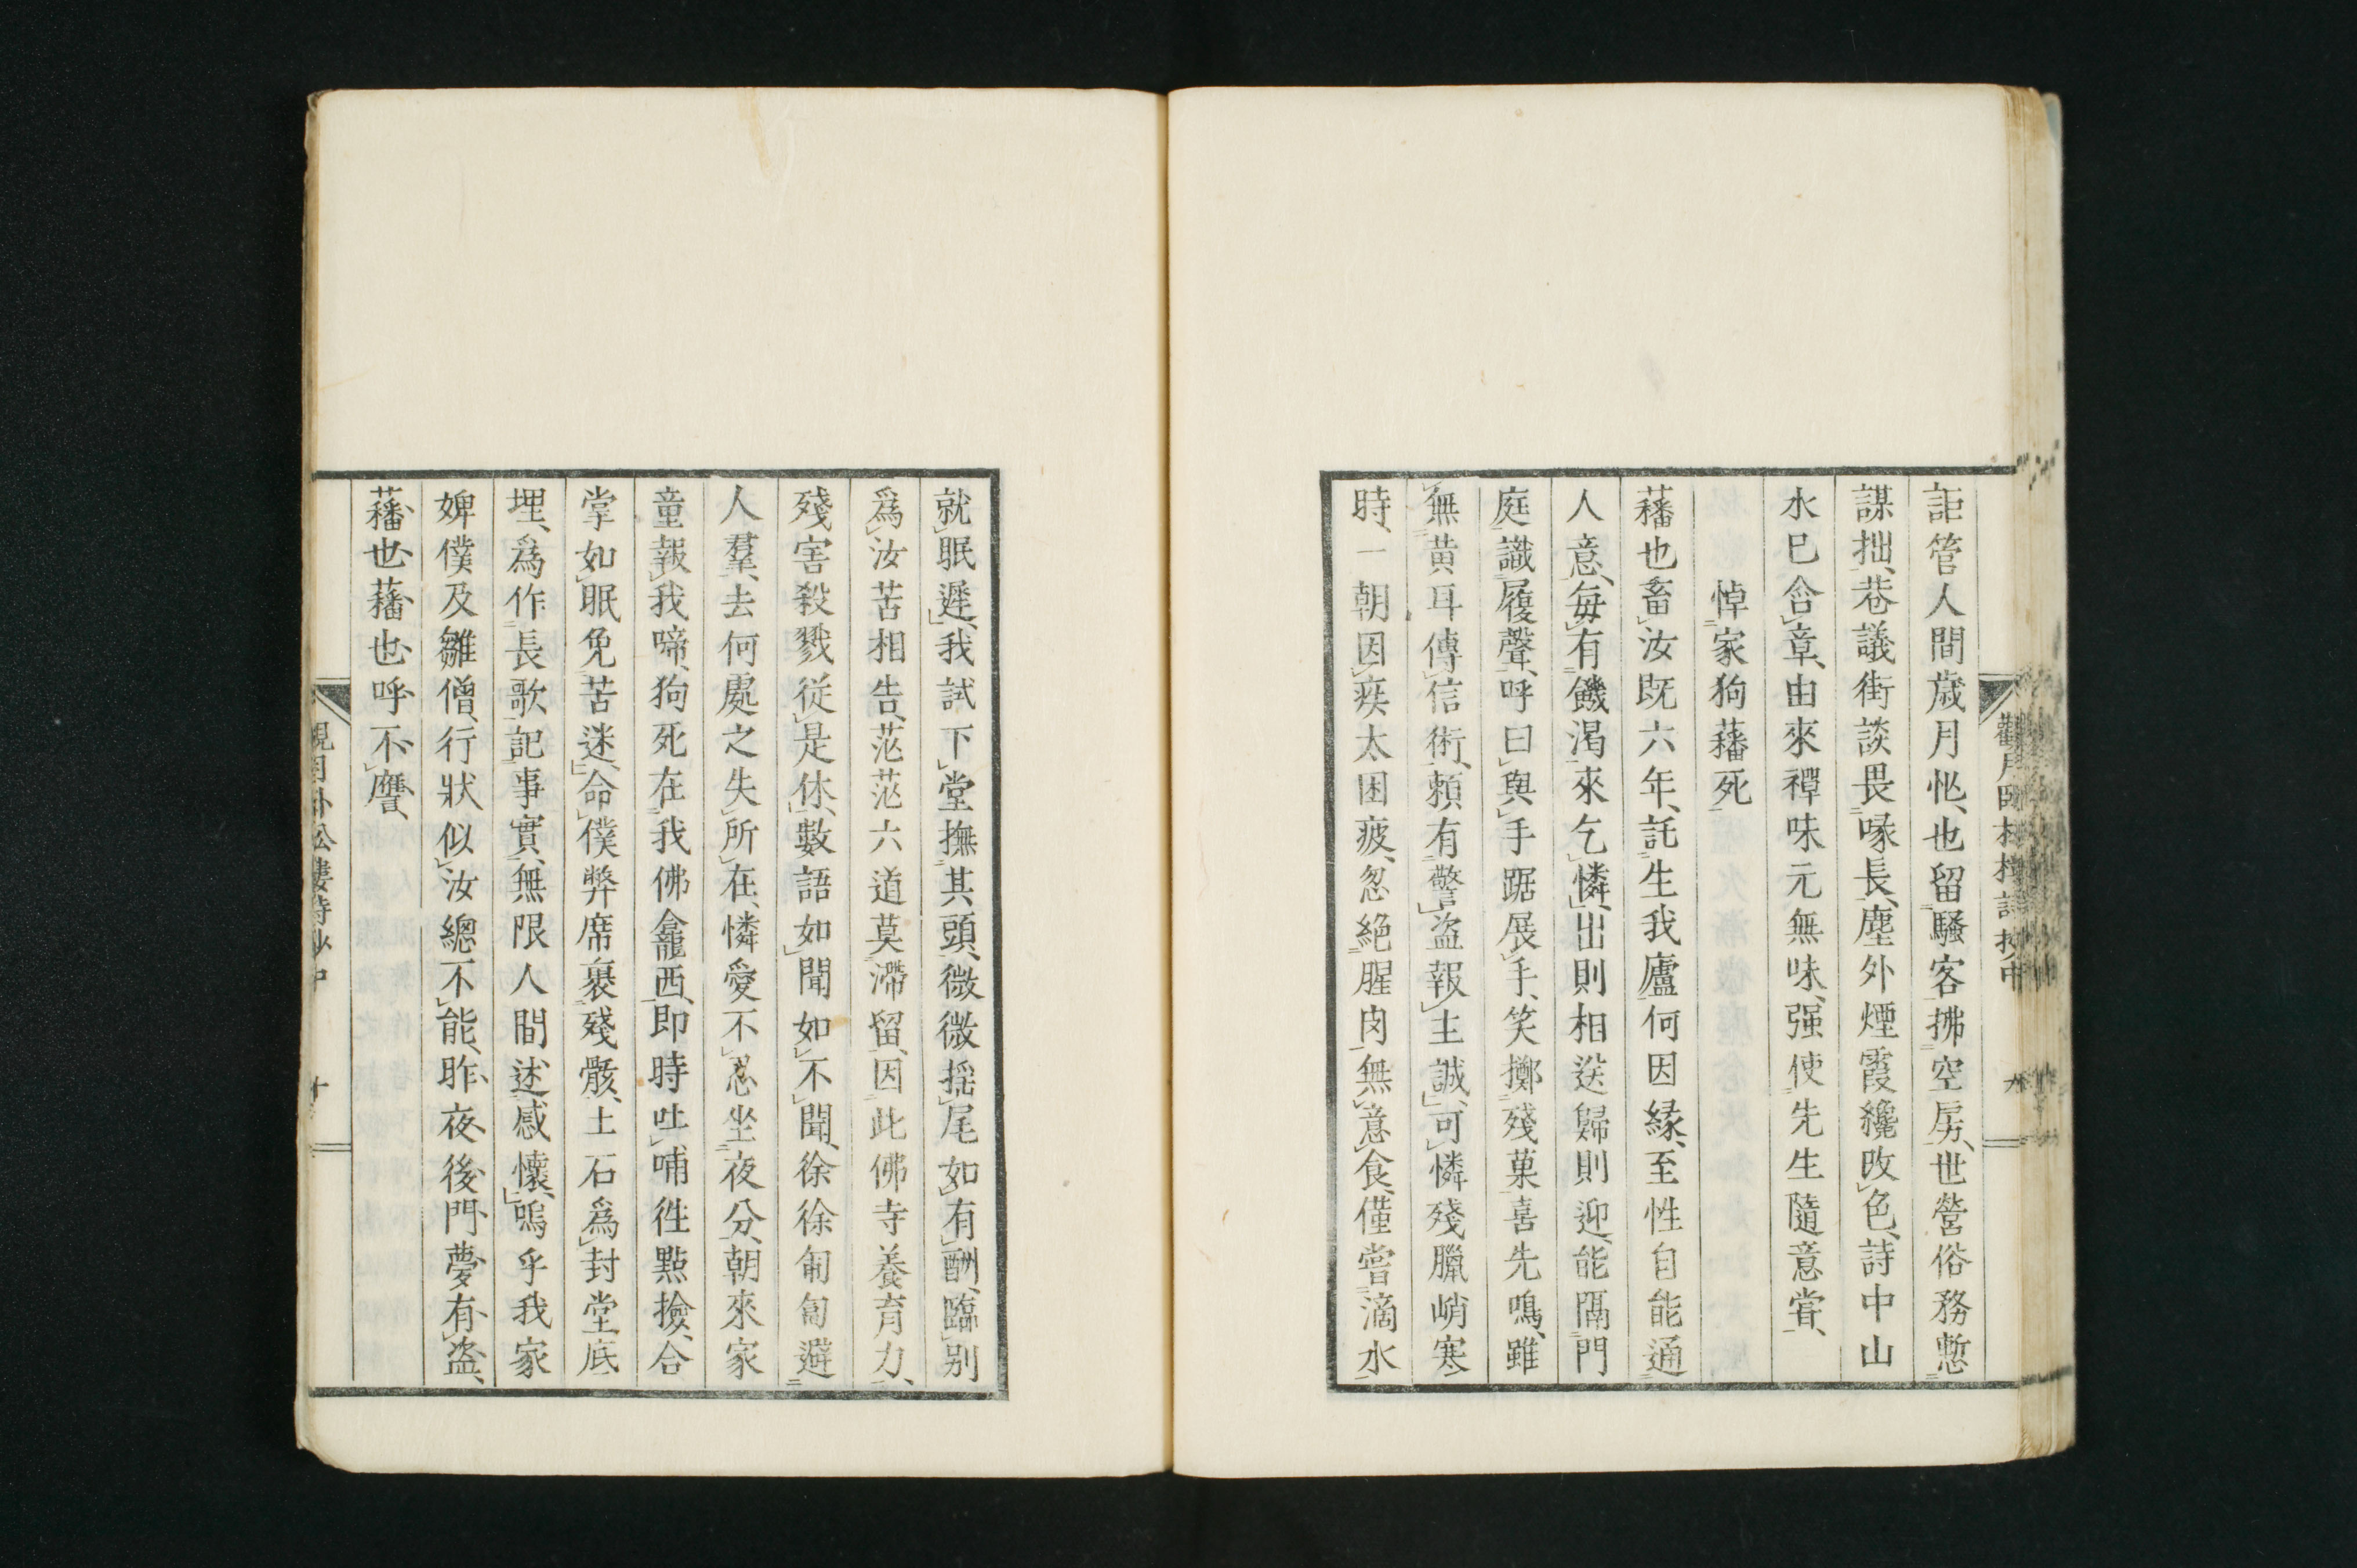 詎管人間歳月忙、也留騷客拂空房、世營俗務慙
謀拙、巷議街談畏喙長、塵外煙霞纔改色、詩中山
水巳含章、由來禪味元無味、强使先生隨意甞、
悼家狗蕃死
蕃也畜汝既六年、託生我廬何因縁、至性自能通
人意、毎有饑渴來乞憐、出則相送歸則迎、能隔門
庭識履聲、呼曰與手踞展手、笑擲殘菓喜先鳴、雖
無黄耳傳信術、頼有警盜報主誠、可憐殘臘峭寒
時、一朝因疾太困疲、忽絶腥肉無意食、僅嘗滴水
就眠遲、我試下堂撫其頭、微微揺尾如有酬、臨別
爲汝苦相告、茫茫六道莫滯留、因此佛寺養育力、
殘害殺戮從是休、數語如聞如不聞、徐徐匍匐避
人羣、去何處之失所在、憐愛不忍坐夜分、朝來家
童報我啼、狗死在我佛龕西、即時吐哺徃點撿、合
掌如眠免苦迷、命僕弊席裹殘骸、土石爲封堂底
埋、爲作長歌記事實、無限人間述感懷、嗚乎我家
婢僕及雛僧、行狀似汝總不能、昨夜後門夢有盜、
蕃也蕃也呼不譍、